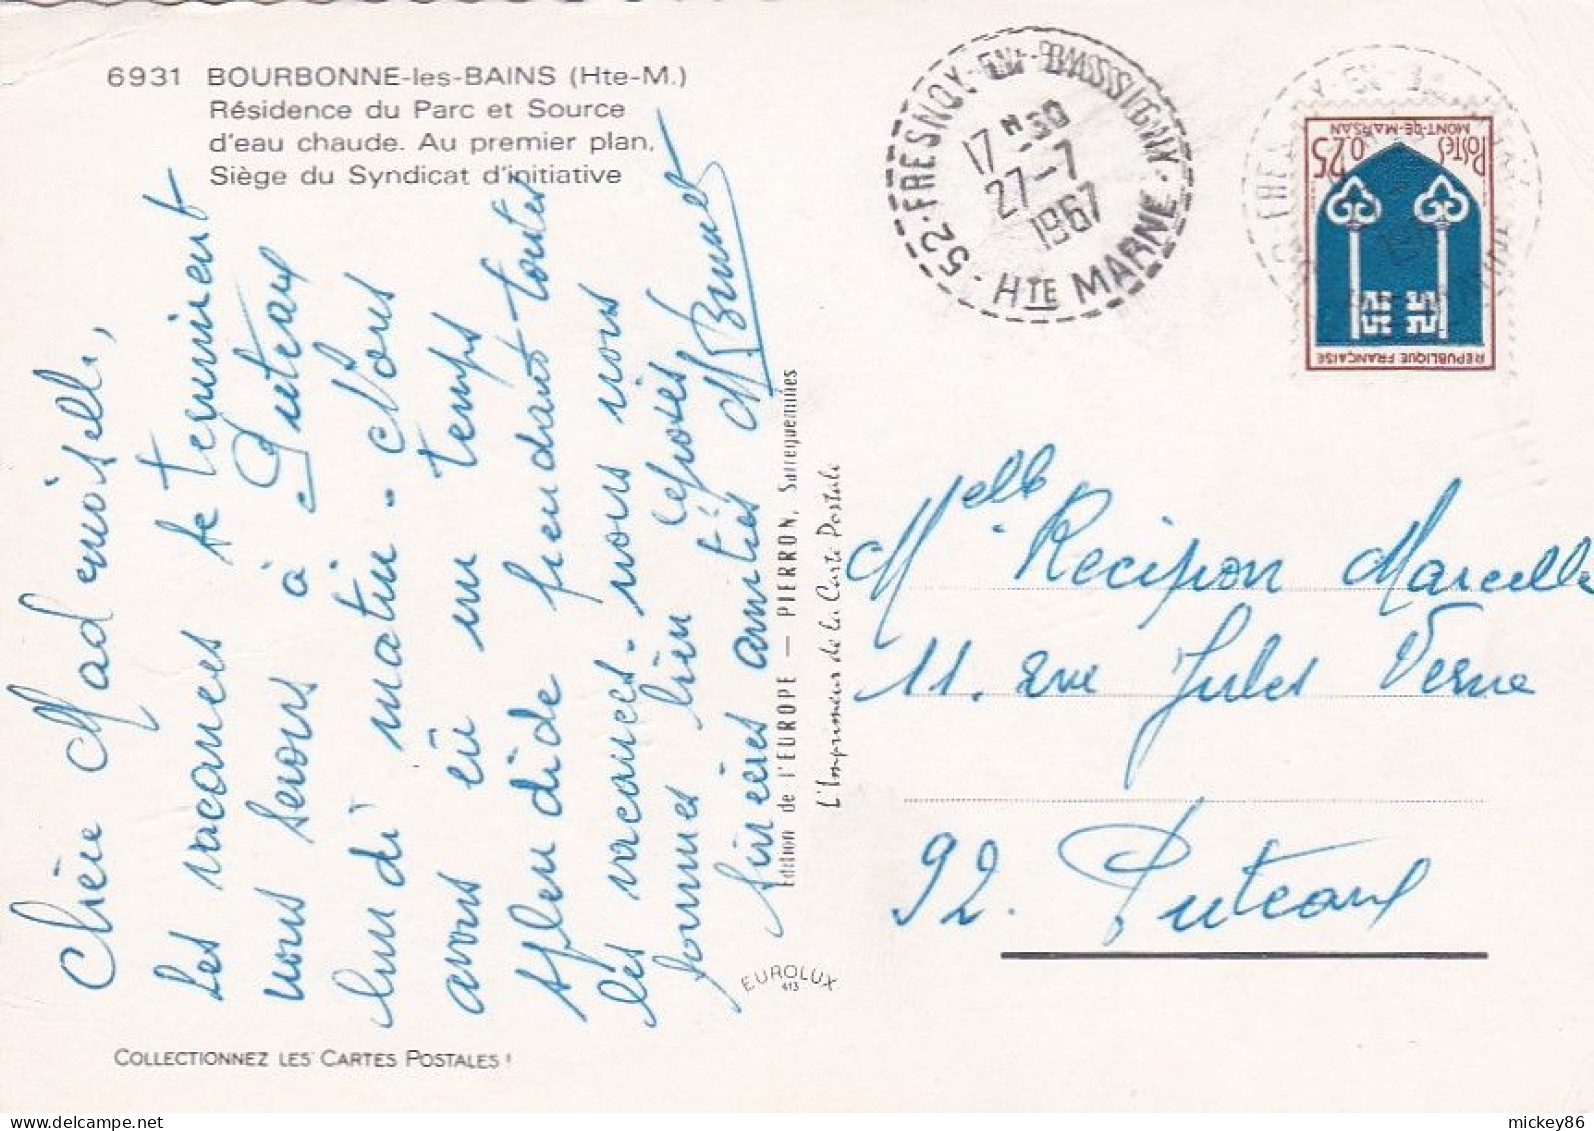 6931 BOURBONNE-les-BAINS (Hte-M.)
Résidence du Parc et Source
d'eau chaude. Au premier plan,
Siège du Syndicat d'initiative
Chère Mademoiselle,
Les vacances se terminent
nous serons à Puteaux
lundi matin - Nous
avons eû un temps
splendide pendant toutes
les vacances - nous nous
sommes bien reposés
Sincères amitiés M. Brunet
Edition de l'EUROPE — PIERRON, Sarreguemines
L'Imprimeur de la Carte Postale
EUROLUX
413
COLLECTIONNEZ LES CARTES POSTALES !
52-FRESNOY-EN-BASSIGNY
17 H 30
27-7
1967
HTE MARNE
POSTES
0,25
MONT-DE-MARSAN
REPUBLIQUE FRANÇAISE
Melle Recipon Marcelle
11. rue Jules Verne
92. Puteaux
mickey86